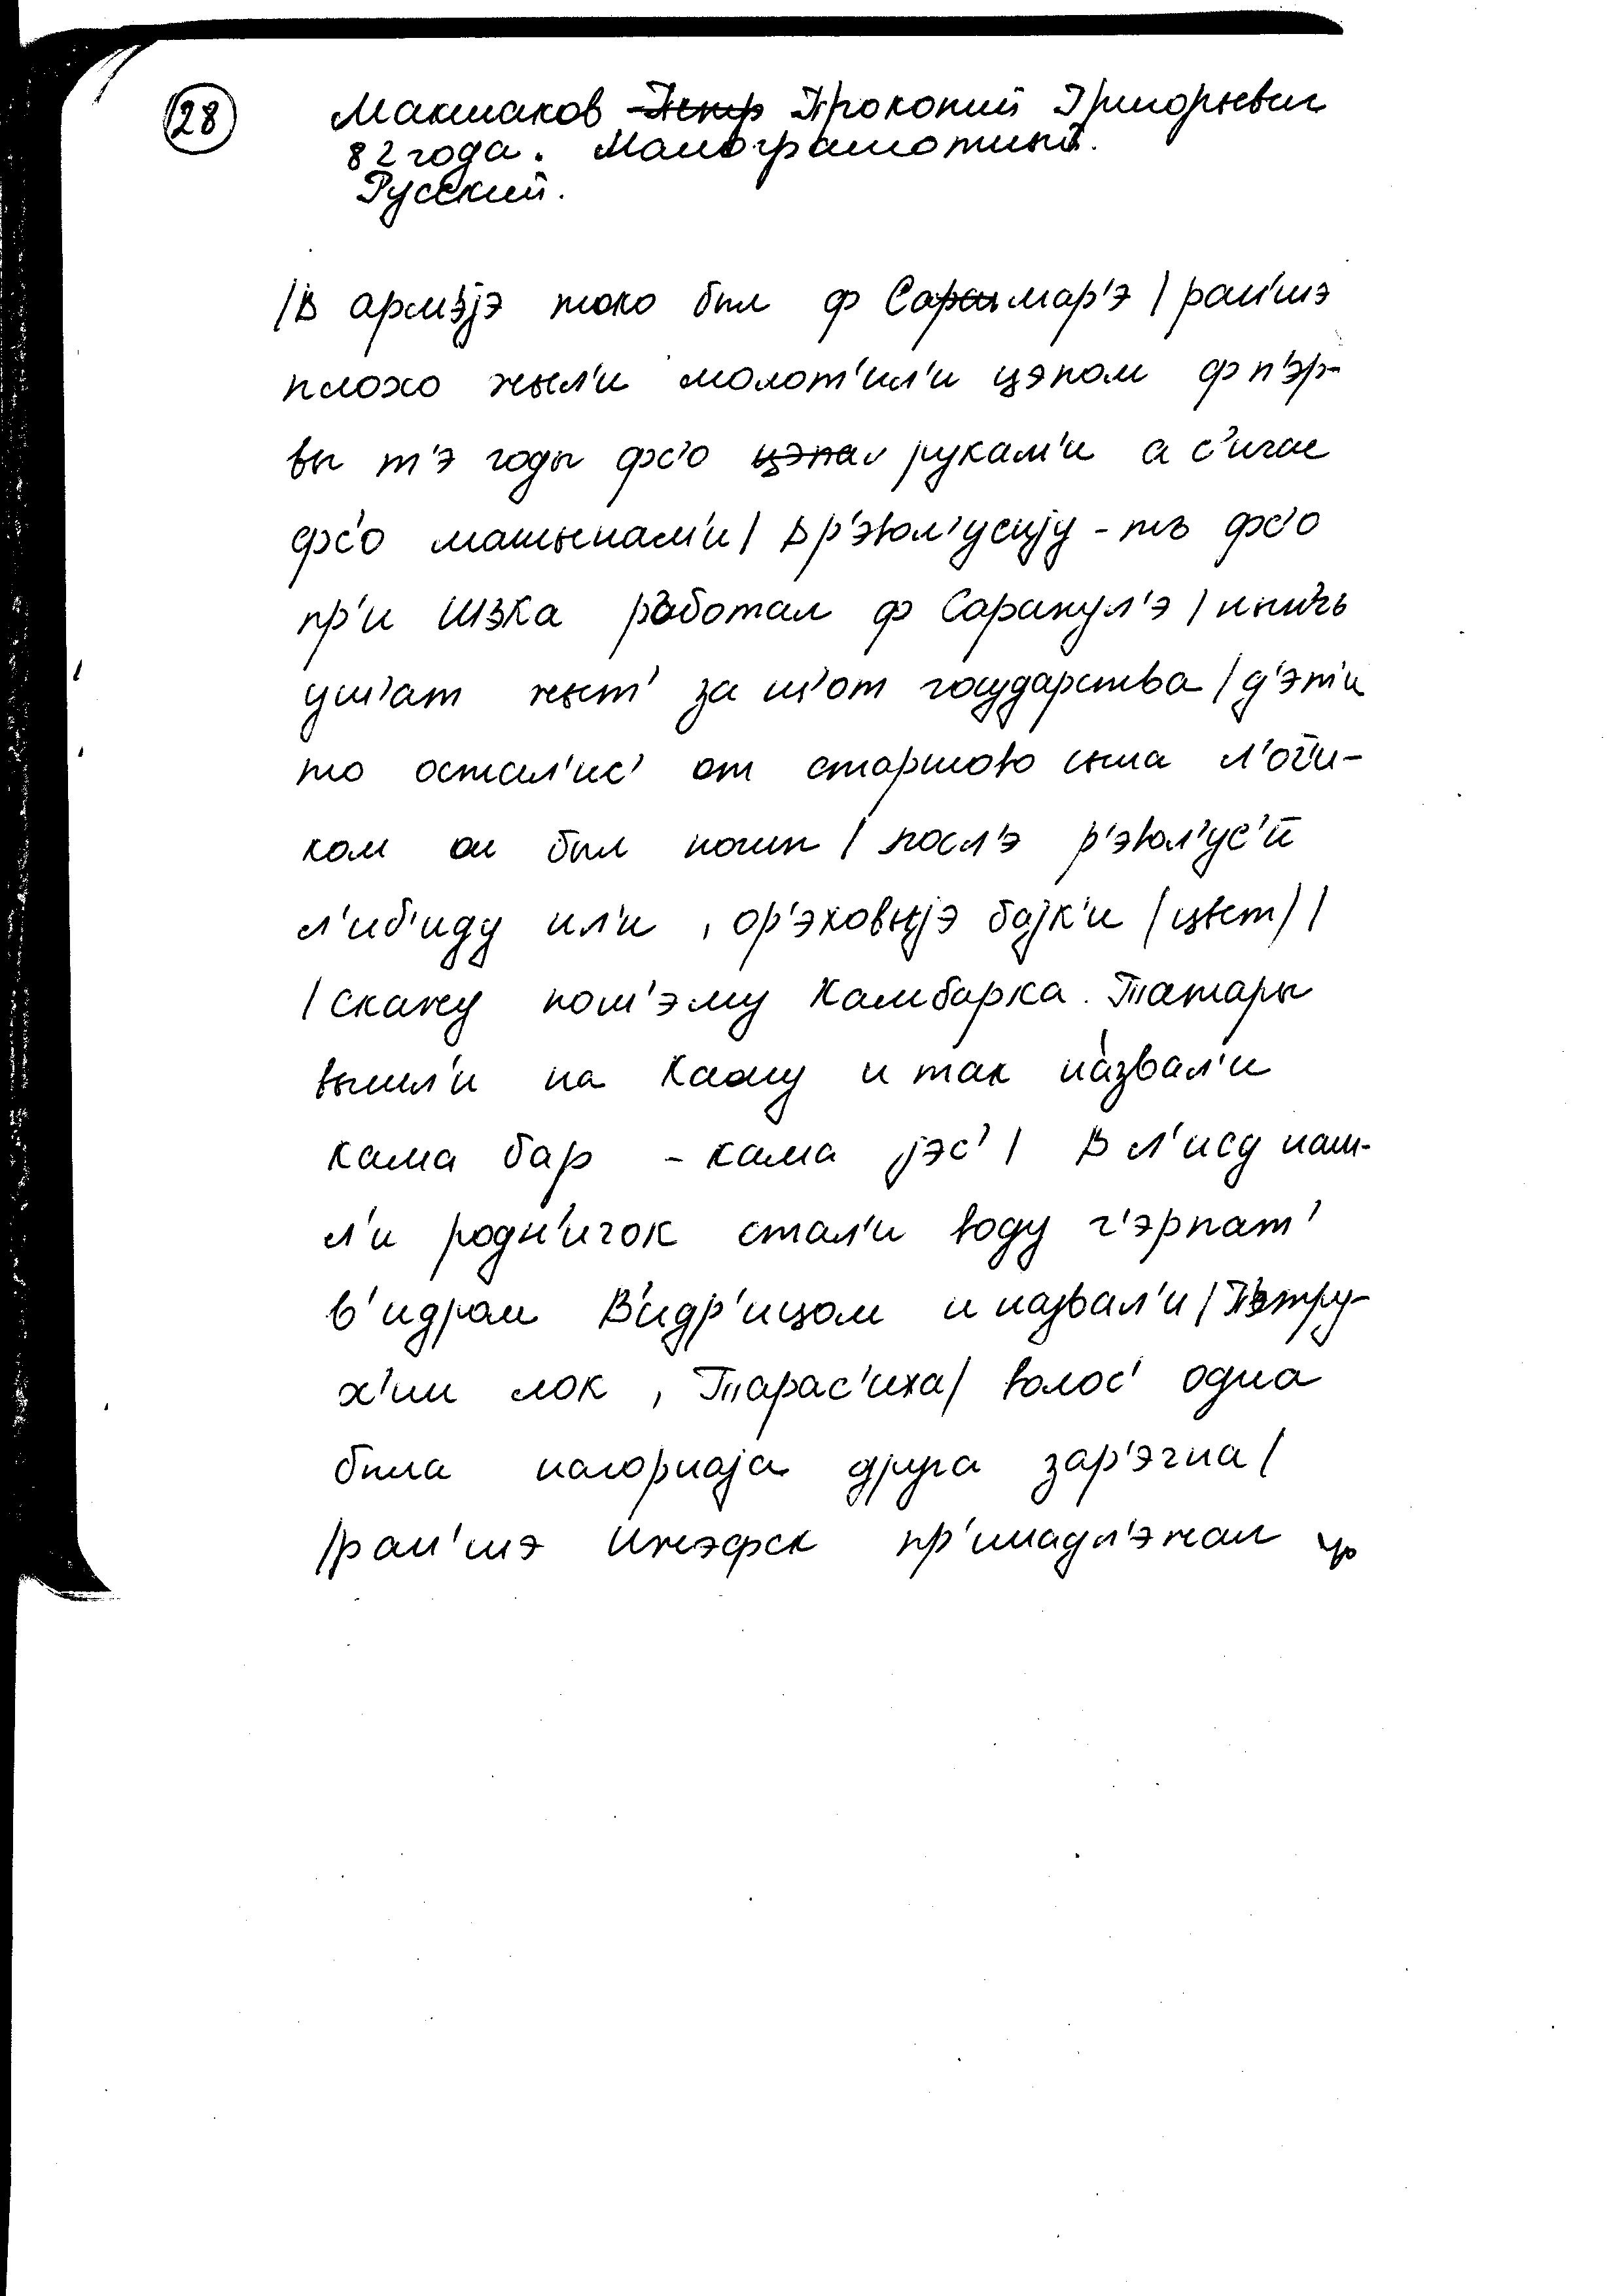 28
Макшаков Прокопий Григорьевич
82 года. Малограмотный.
Русский.
/В арм'эjэ токо был ф Самар'э / ран'шэ
плохо жыл'и молот'ил'и цэпом ф п'эр-
вы т'э годы фс'о рукам'и а с'ичас
фс'о машынам'и / В р'эвол'уцijу - тъ фс'о
пр'и работал ф Сарапул'э /
жыт' за ш'от государства / д'эт'и
то остал'ис' от старшово сына
ком он был / посл'э р'эвол'уc'и
л'иб'иду ил'и , ор'эховыjэ баjк'и (цвет) /
/ скажу пош'эму Камбарка. Татары
вышл'и на Каму и так назвал'и
кама бар - кама jэс' / В л'ису наш-
л'и родн'ичок стал'и воду ч'эрпат'
в'идром В'идр'ицом и назвал'и / П'этру-
х'ин лок , Тарас'иха / волос' одна
была нагорнаjа друга зар'эчна /
/ран'шэ Ижэфск пр'инадл'эжал